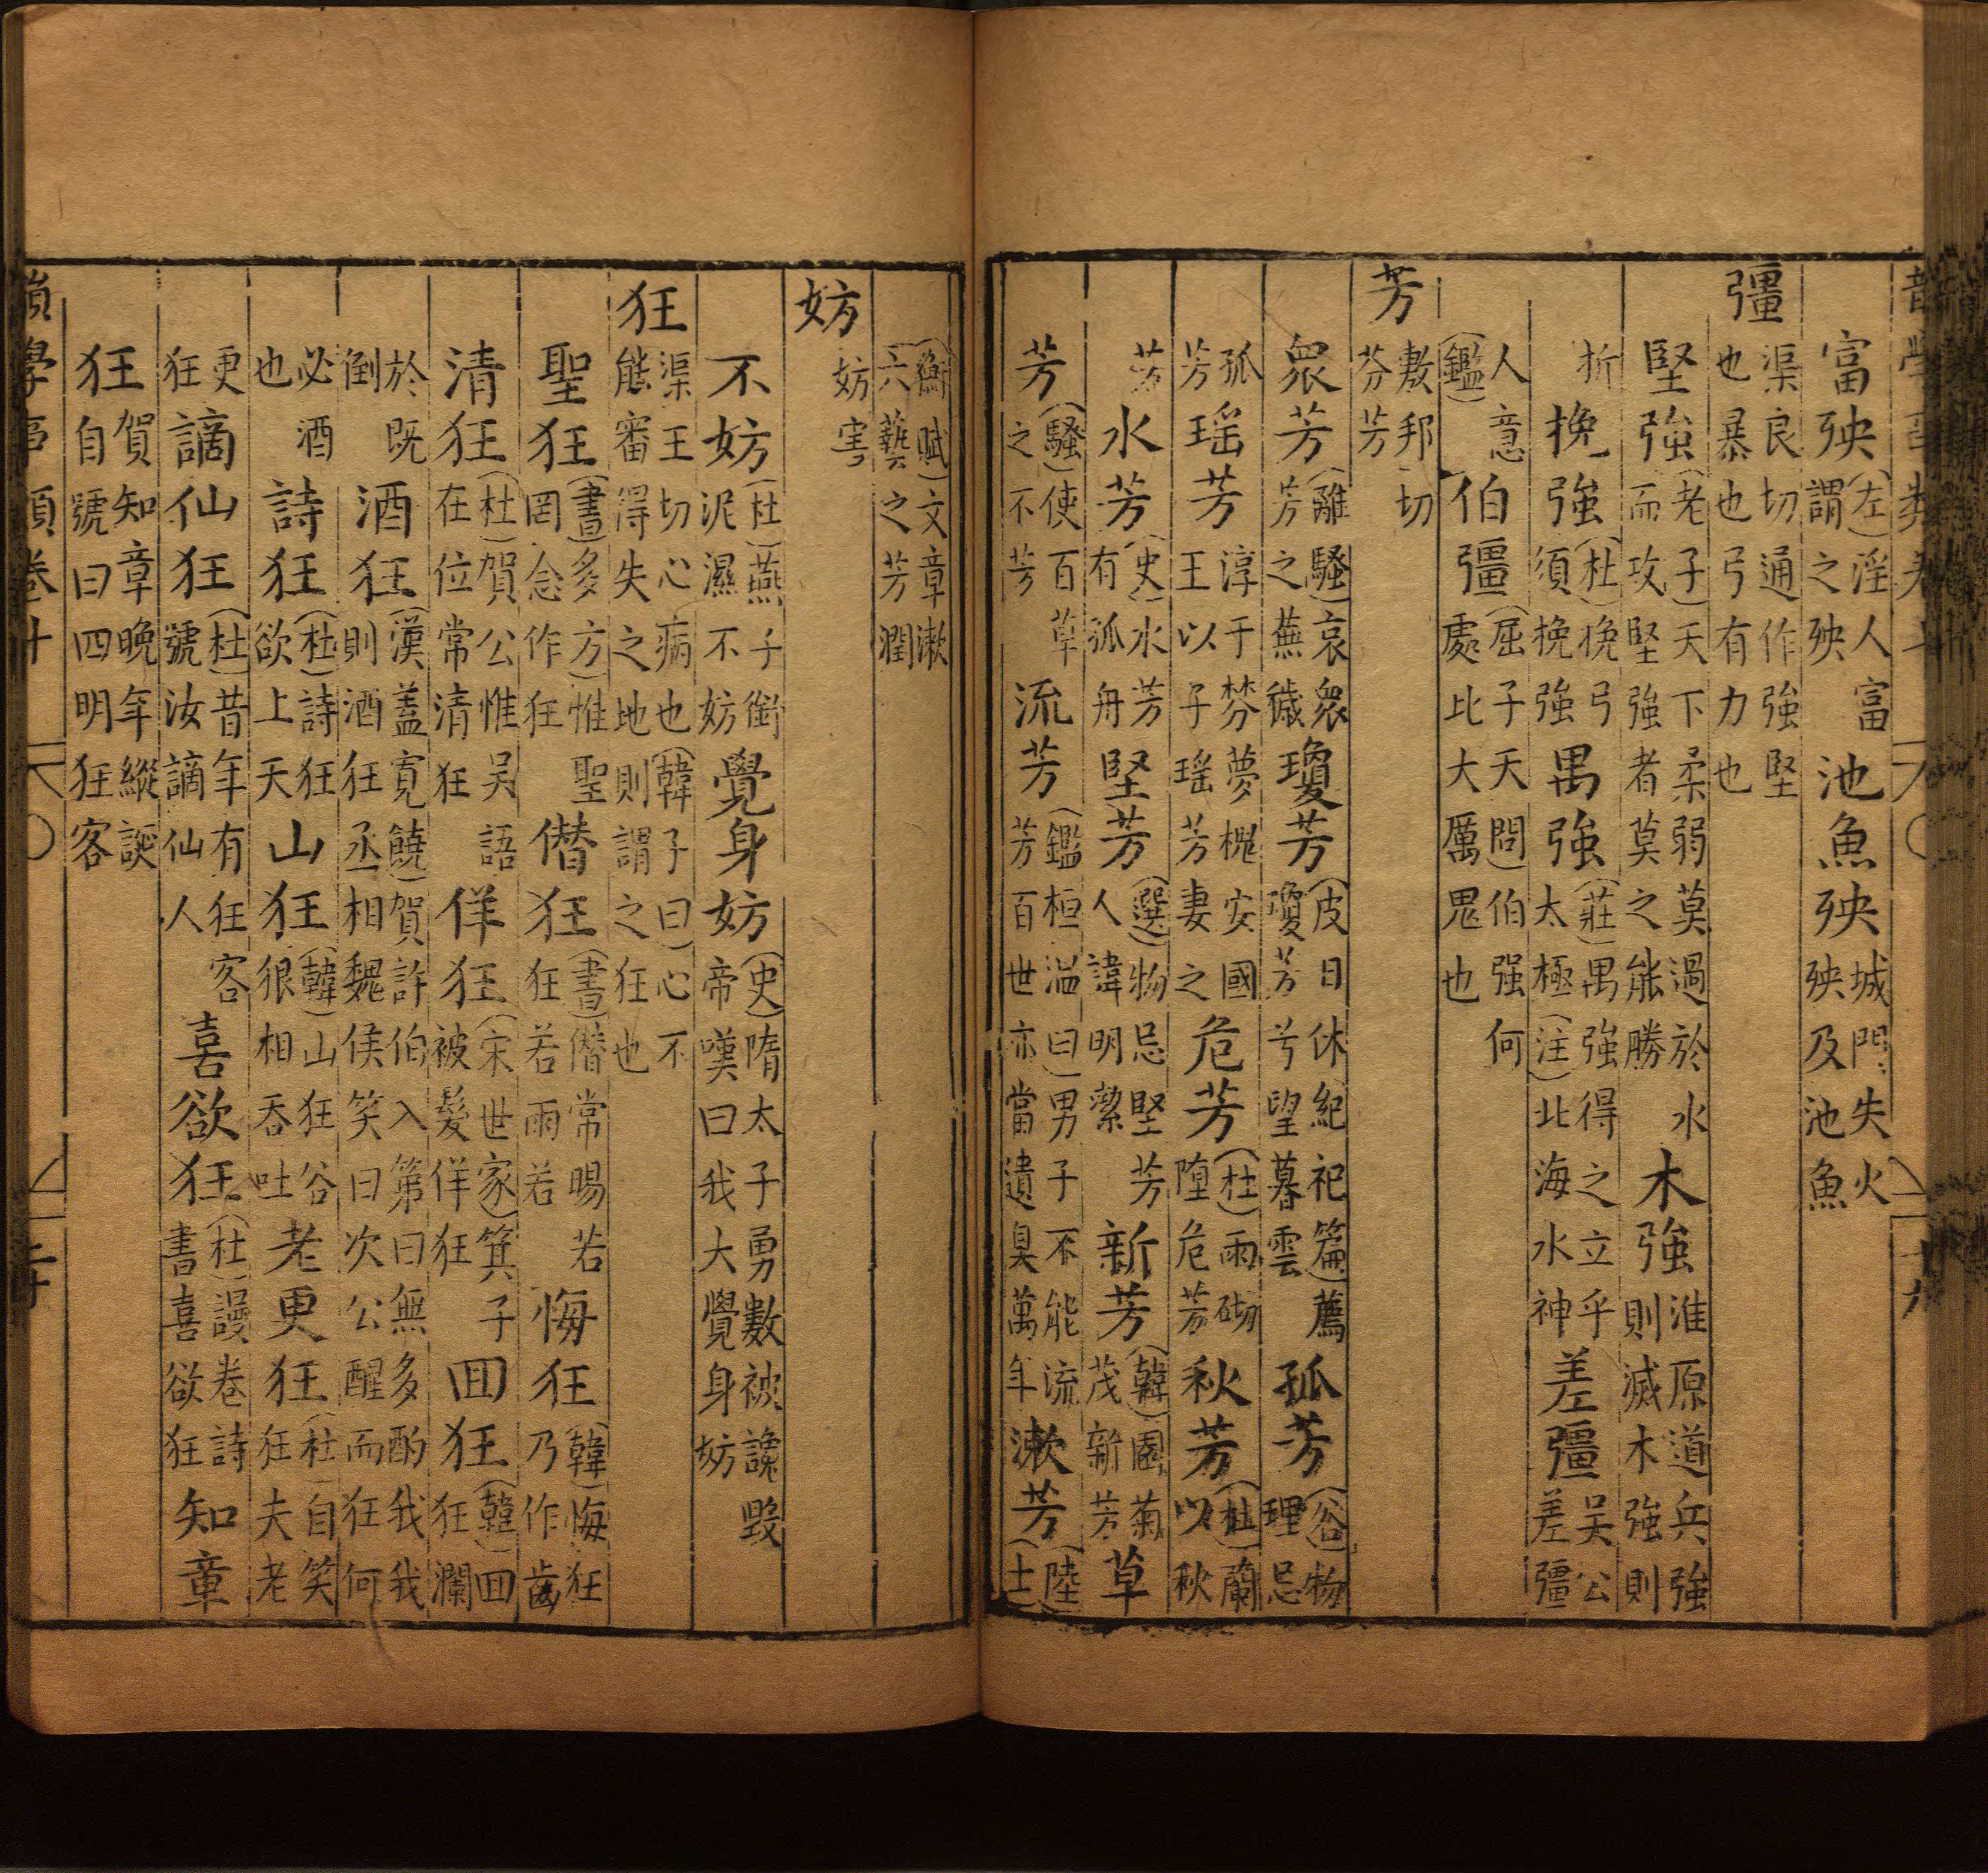 富殃(左)淫人富謂之殃池魚殃城門失火殃及池魚
彊渠良切通作強堅也暴也弓有力也
堅強(老子)天下柔弱莫過於水而攻堅強者莫之能勝木強淮原道兵強則滅木強則
折挽強(杜)挽弓須挽強禺強(莊)禺強得之立乎太極(注)北海水神差彊吳公差彊
人意(鑑)伯彊(屈子天問)伯强何處比大厲鬼也
芳敷邦切芬芳
眾芳(離騷)哀眾芳之蕪穢瓊芳(皮日休紀祀篇)薦瓊芳兮望暮雲孤芳(谷)物理忌
孤芳瑤芳淳于棼夢槐安國王以子瑤芳妻之危芳(杜)雨砌墮危芳秋芳(杜)蘭以秋
芳水芳(史)水芳有孤舟堅芳(選)物忌堅芳人諱明潔新芳(韓)園菊茂新芳草
芳(騷)使百草之不芳流芳(鑑)桓温曰男子不能流芳百世亦當遺臭萬年漱芳(陸士
衡賦)文章漱六藝之芳潤
妨妨害
不妨(杜)燕子銜泥濕不妨覺身妨(史)隋太子勇數被讒毀帝嘆曰我大覺身妨
狂渠王切心病也(韓子曰)心不能審得失之地則謂之狂也
聖狂(書多方)惟聖罔念作狂僭狂(書)僭常暘若狂若雨若悔狂(韓)悔狂乃作齒
清狂(杜)賀公惟吳語在位常清狂佯狂(宋世家)箕子被髮佯狂回狂(韓)回狂瀾
於既倒酒狂(漢蓋寬饒)賀許伯入第曰無多酌我我則酒狂丞相魏侯笑曰次公醒而狂何
必酒也詩狂(杜)詩狂欲上天山狂(韓)山狂谷很相吞吐老更狂(杜)自笑狂夫老
更狂謫仙狂(杜)昔年有狂客號汝謫仙人喜欲狂(杜)謾卷詩書喜欲狂知章
狂賀知章晚年縱誕自號曰四明狂客
韻學事類卷十